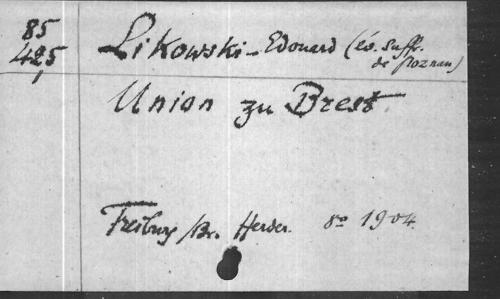 85
425
Likowski - Edouard (év. suff.
de Poznan)
Union zu Brest.
Freiburg /Br. Herder. 8º 1904.